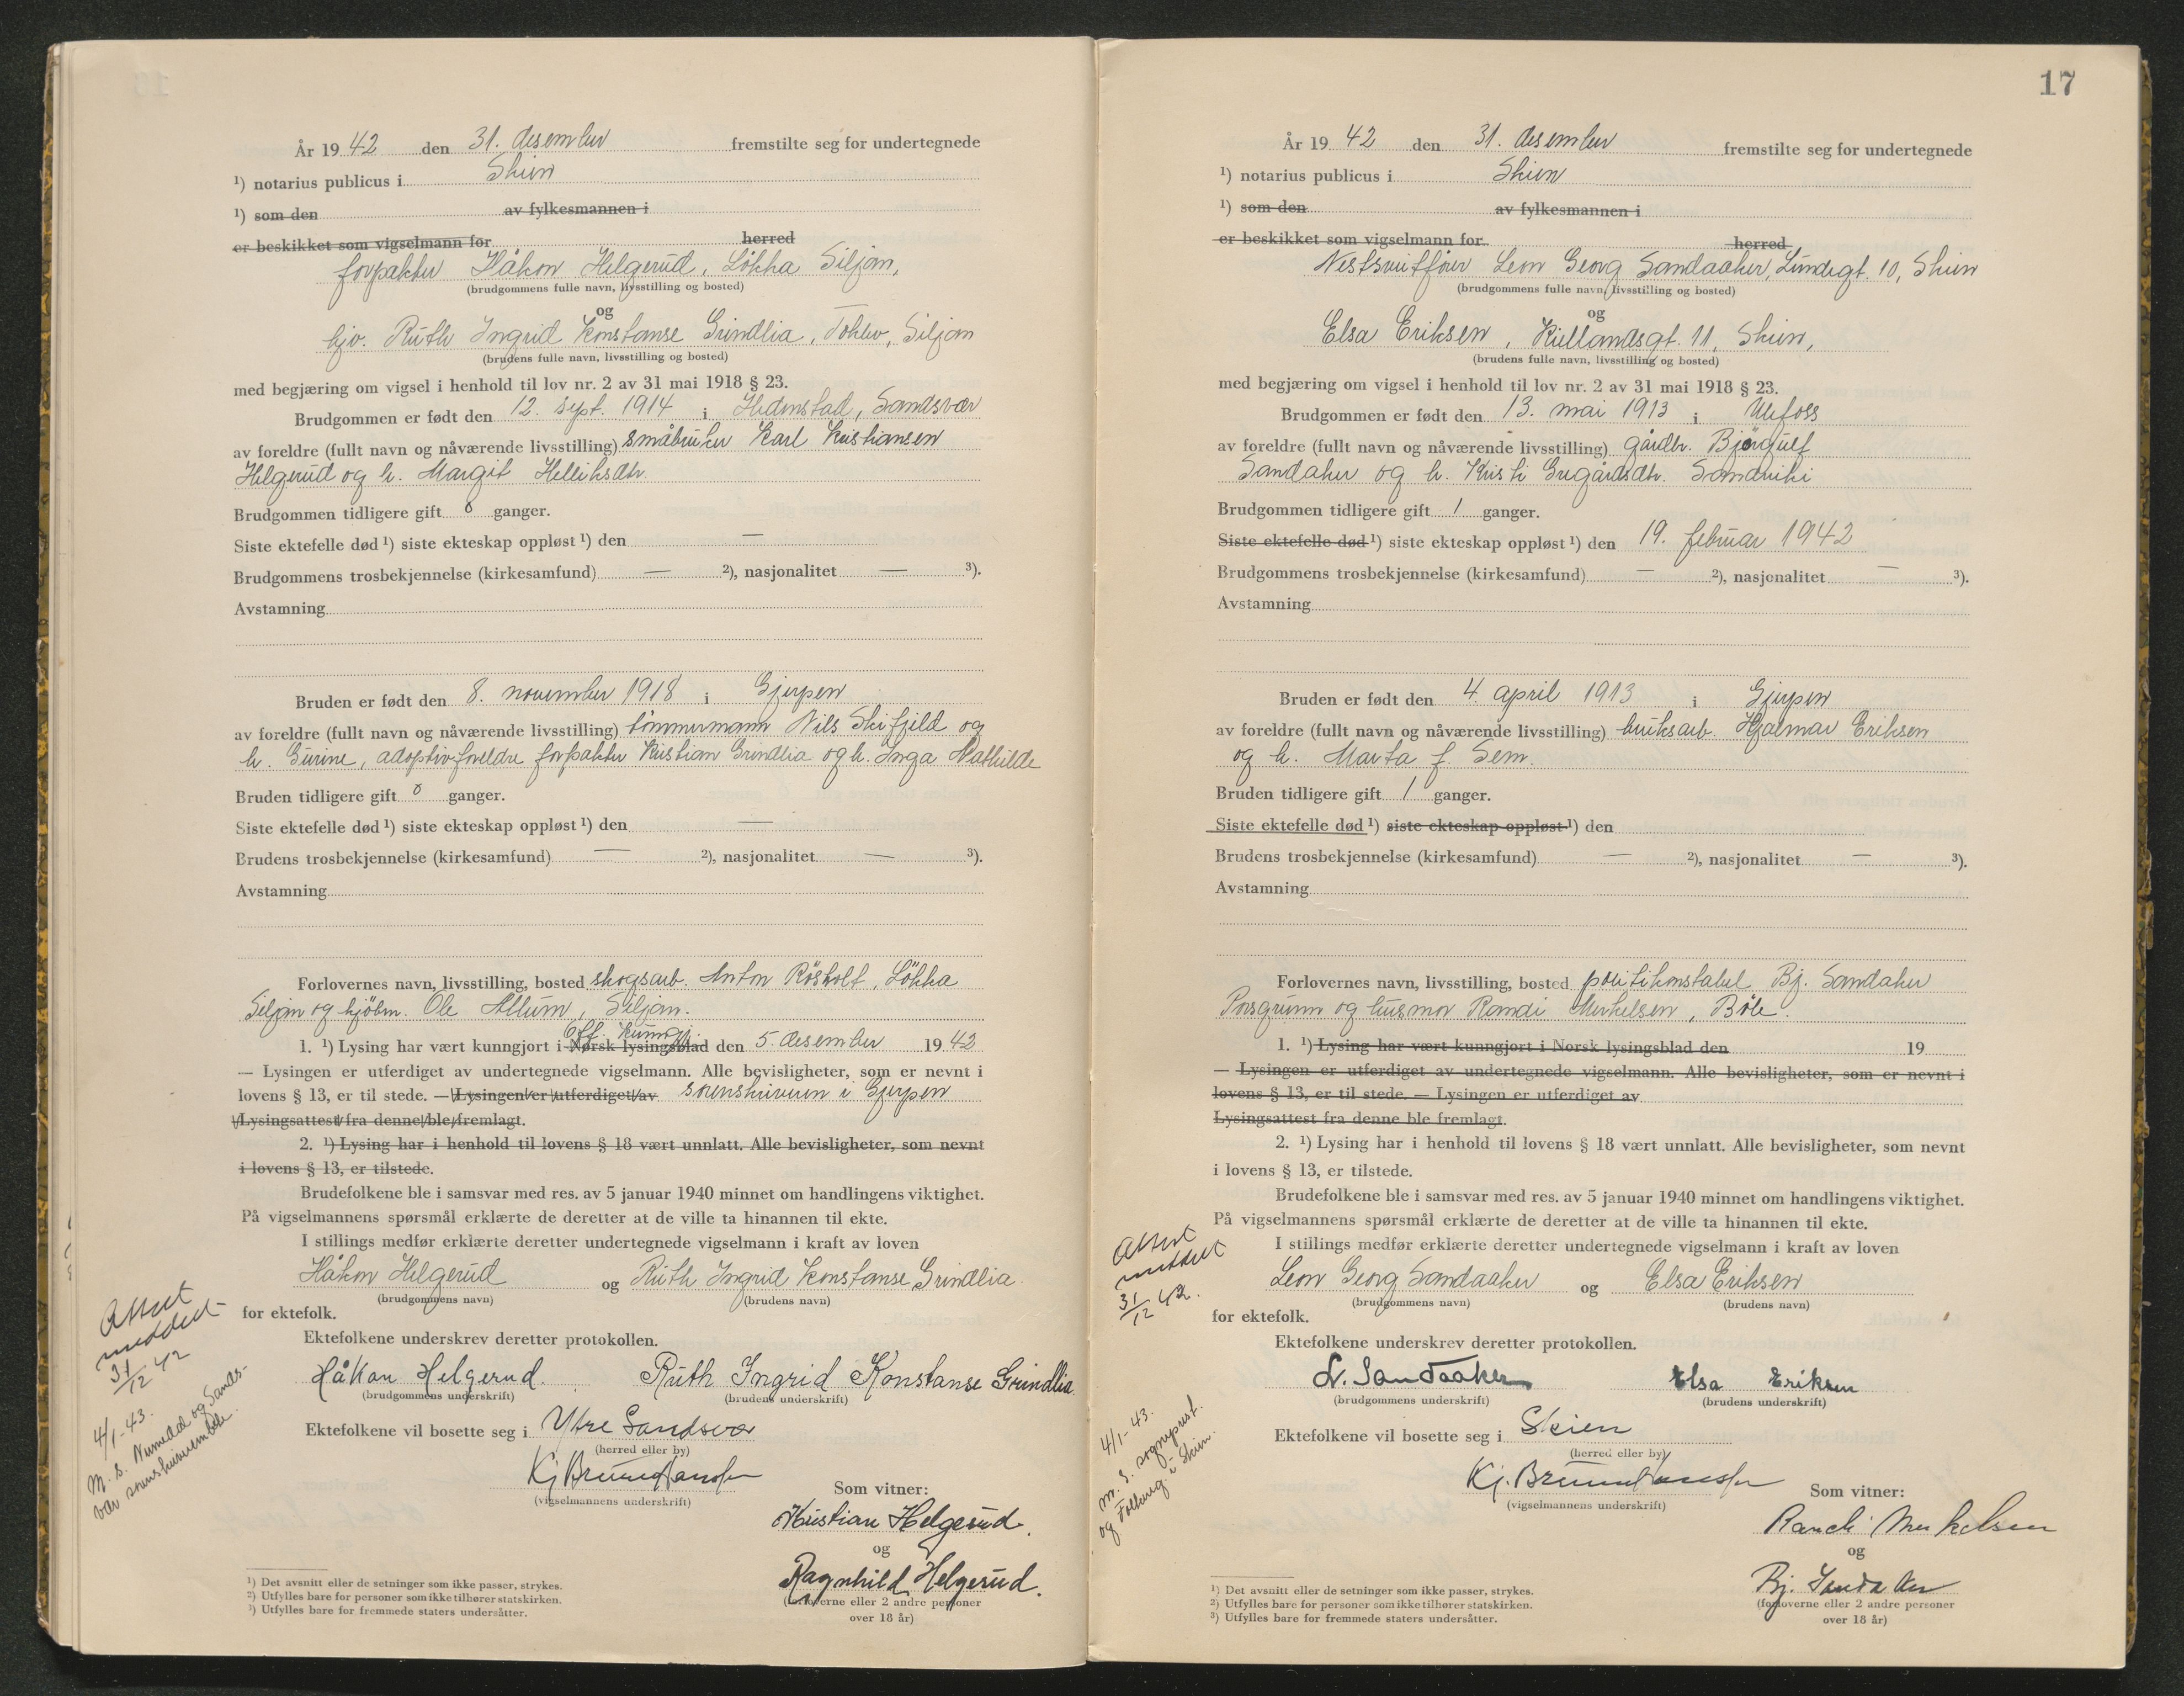 År 19 42 den 31. desember fremstilte seg for undertegnede
¹) notarius publicus i Skien
¹) som den av fylkesmannen i
er beskikket som vigselmann for herred
forpakter Håkon Helgerud, Løkka Siljan,
(brudgommens fulle navn, livsstilling og bosted)
og
hjv. Ruth Ingrid Konstanse Grindlia, Siljan
(brudens fulle navn, livsstilling og bosted)
med begjæring om vigsel i henhold til lov nr. 2 av 31 mai 1918 § 23.
Brudgommen er født den 12. sept. 1914 i Hedenstad, Sandsvær
av foreldre (fullt navn og nåværende livsstilling) småbruker Karl Kristiansen
Helgerud og h. Margit Helleiksdtr.
Brudgommen tidligere gift 0 ganger.
Siste ektefelle død ¹) siste ekteskap oppløst ¹) den —
Brudgommens trosbekjennelse (kirkesamfund) — ²), nasjonalitet — ³).
Avstamning
Bruden er født den 8. november 1918 i Gjerpen
av foreldre (fullt navn og nåværende livsstilling) tømmermann Nils Skifjeld og
h. Gurine, adoptivforeldre forpakter Kristian Grindlia og h. Inga Mathilde
Bruden tidligere gift 0 ganger.
Siste ektefelle død ¹) siste ekteskap oppløst ¹) den —
Brudens trosbekjennelse (kirkesamfund) — ²), nasjonalitet — ³).
Avstamning
Forlovernes navn, livsstilling, bosted skogsarb. Anton Røsholt, Løkka
Siljan og kjøbm. Ole Allum, Siljan.
Off. kunngj.
1. ¹) Lysing har vært kunngjort i Norsk lysingsblad den 5. desember 19 42
— Lysingen er utferdiget av undertegnede vigselmann. Alle bevisligheter, som er nevnt i
lovens § 13, er til stede. — Lysingen er utferdiget av sorenskriveren i Gjerpen
Lysingsattest fra denne ble fremlagt.
2. ¹) Lysing har i henhold til lovens § 18 vært unnlatt. Alle bevisligheter, som nevnt
i lovens § 13, er tilstede.
Brudefolkene ble i samsvar med res. av 5 januar 1940 minnet om handlingens viktighet.
På vigselmannens spørsmål erklærte de deretter at de ville ta hinannen til ekte.
I stillings medfør erklærte deretter undertegnede vigselmann i kraft av loven
Håkon Helgerud og Ruth Ingrid Konstanse Grindlia
(brudgommens navn) (brudens navn)
for ektefolk.
Ektefolkene underskrev deretter protokollen.
Håkon Helgerud. Ruth Ingrid Konstanse Grindlia
(brudgommens underskrift) (brudens underskrift)
Ektefolkene vil bosette seg i Ytre Sandsvær
(herred eller by)
Kj Brun
(vigselmannens underskrift)
Som vitner:
Kristian Helgerud.
og
Ragnhild Helgerud.
(forloverne eller 2 andre personer
over 18 år)
Attest
meddelt
31/12 42
4/1-43.
M. s. Numedal og Sands-
vær sorenskriverembede.
¹) Det avsnitt eller de setninger som ikke passer, strykes.
²) Utfylles bare for personer som ikke tilhører statskirken.
³) Utfylles bare for fremmede staters undersåtter.
17
År 19 42 den 31. desember fremstilte seg for undertegnede
¹) notarius publicus i Skien
¹) som den av fylkesmannen i
er beskikket som vigselmann for herred
Leon Georg Sandaaker, Lundegt. 10, Skien
(brudgommens fulle navn, livsstilling og bosted)
og
Elsa Eriksen, Kiellandsgt. 11, Skien,
(brudens fulle navn, livsstilling og bosted)
med begjæring om vigsel i henhold til lov nr. 2 av 31 mai 1918 § 23.
Brudgommen er født den 13. mai 1913 i Ulefoss
av foreldre (fullt navn og nåværende livsstilling) gårdbr. Bjørgulf
Sandaker og h. Kristi Gregardsdtr.
Brudgommen tidligere gift 1 ganger.
Siste ektefelle død ¹) siste ekteskap oppløst ¹) den 19. februar 1942
Brudgommens trosbekjennelse (kirkesamfund) — ²), nasjonalitet — ³).
Avstamning
Bruden er født den 4. april 1913 i Gjerpen
av foreldre (fullt navn og nåværende livsstilling) bruksarb. Hjalmar Eriksen
og h. Marta f. Sem.
Bruden tidligere gift 1 ganger.
Siste ektefelle død ¹) siste ekteskap oppløst ¹) den
Brudens trosbekjennelse (kirkesamfund) — ²), nasjonalitet — ³).
Avstamning
Forlovernes navn, livsstilling, bosted politikonstabel Bj. Sandaker
Porsgrunn og husmor Randi Merkelsen, Bøle.
1. ¹) Lysing har vært kunngjort i Norsk lysingsblad den 19
— Lysingen er utferdiget av undertegnede vigselmann. Alle bevisligheter, som er nevnt i
lovens § 13, er til stede. — Lysingen er utferdiget av
Lysingsattest fra denne ble fremlagt.
2. ¹) Lysing har i henhold til lovens § 18 vært unnlatt. Alle bevisligheter, som nevnt
i lovens § 13, er tilstede.
Brudefolkene ble i samsvar med res. av 5 januar 1940 minnet om handlingens viktighet.
På vigselmannens spørsmål erklærte de deretter at de ville ta hinannen til ekte.
I stillings medfør erklærte deretter undertegnede vigselmann i kraft av loven
Leon Georg Sandaaker og Elsa Eriksen
(brudgommens navn) (brudens navn)
for ektefolk.
Ektefolkene underskrev deretter protokollen.
Sandaaker Elsa Eriksen
(brudgommens underskrift) (brudens underskrift)
Ektefolkene vil bosette seg i Skien
(herred eller by)
Kj. Brun
(vigselmannens underskrift)
Som vitner:
Randi Merkelsen
og
Bj. Sandaker
(forloverne eller 2 andre personer
over 18 år)
Attest
meddelt
31/12 42.
4/1-43.
m. s. sogneprest.
og Folkereg. i Skien.
¹) Det avsnitt eller de setninger som ikke passer, strykes.
²) Utfylles bare for personer som ikke tilhører statskirken.
³) Utfylles bare for fremmede staters undersåtter.